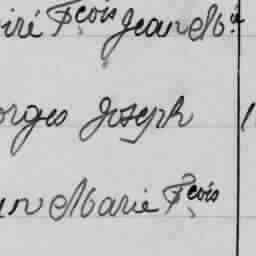 iré Fçois Jean M.ie
orges Joseph
un Marie Fçois